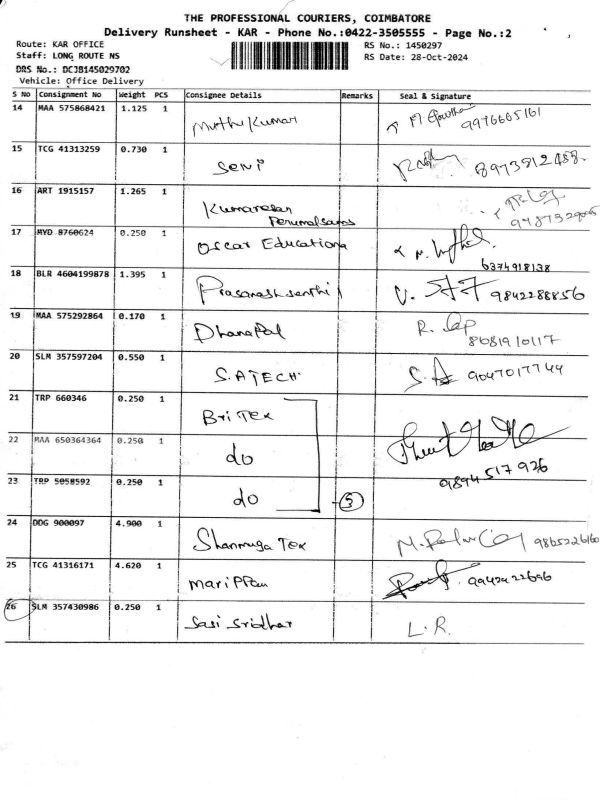 THE PROFESSIONAL COURIERS, COIMBATORE
Delivery Runsheet - KAR - Phone No.:0422-3505555 - Page No.:2
Route: KAR OFFICE
RS No.: 1450297
Staff: LONG ROUTE NS
RS Date: 28-Oct-2024
DRS No.: DCJB145029702
Vehicle: Office Delivery
S No Consignment No Weight PCS Consignee Details Remarks Seal & Signature
14 MAA 575868421 1.125 1 Muthu Kumar 9976605161
15 TCG 41313259 0.730 1 Selvi 8973912488
16 ART 1915157 1.265 1 Kumaresan
Perumalsamy
17 MYD 8760624 0.250 1 Oscar Educationa
6374918138
18 BLR 4604199878 1.395 1 Prasanash senthil 9842288856
19 MAA 575292864 0.170 1 Dhanapal R.
20 SLM 357597204 0.550 1 S.A TECH 9047017744
21 TRP 660346 0.250 1 Bri Tex
22 MAA 650364364 0.250 1 do
9894517926
23 TRP 5058592 0.250 1 do 3
24 DDG 900097 4.900 1 Shanmuga Tex M.
25 TCG 41316171 4.620 1 Marippan 9942422696
26 SLM 357430986 0.250 1 Sasi Sridhar L.R.